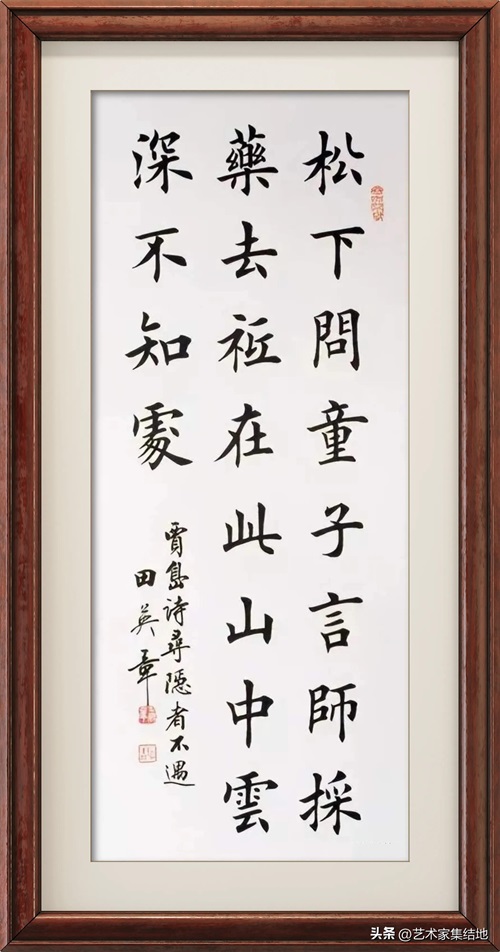 松下問童子言師採
藥去祗在此山中雲
深不知處
賈島诗尋隱者不遇
田英章
头条 @艺术家集结地